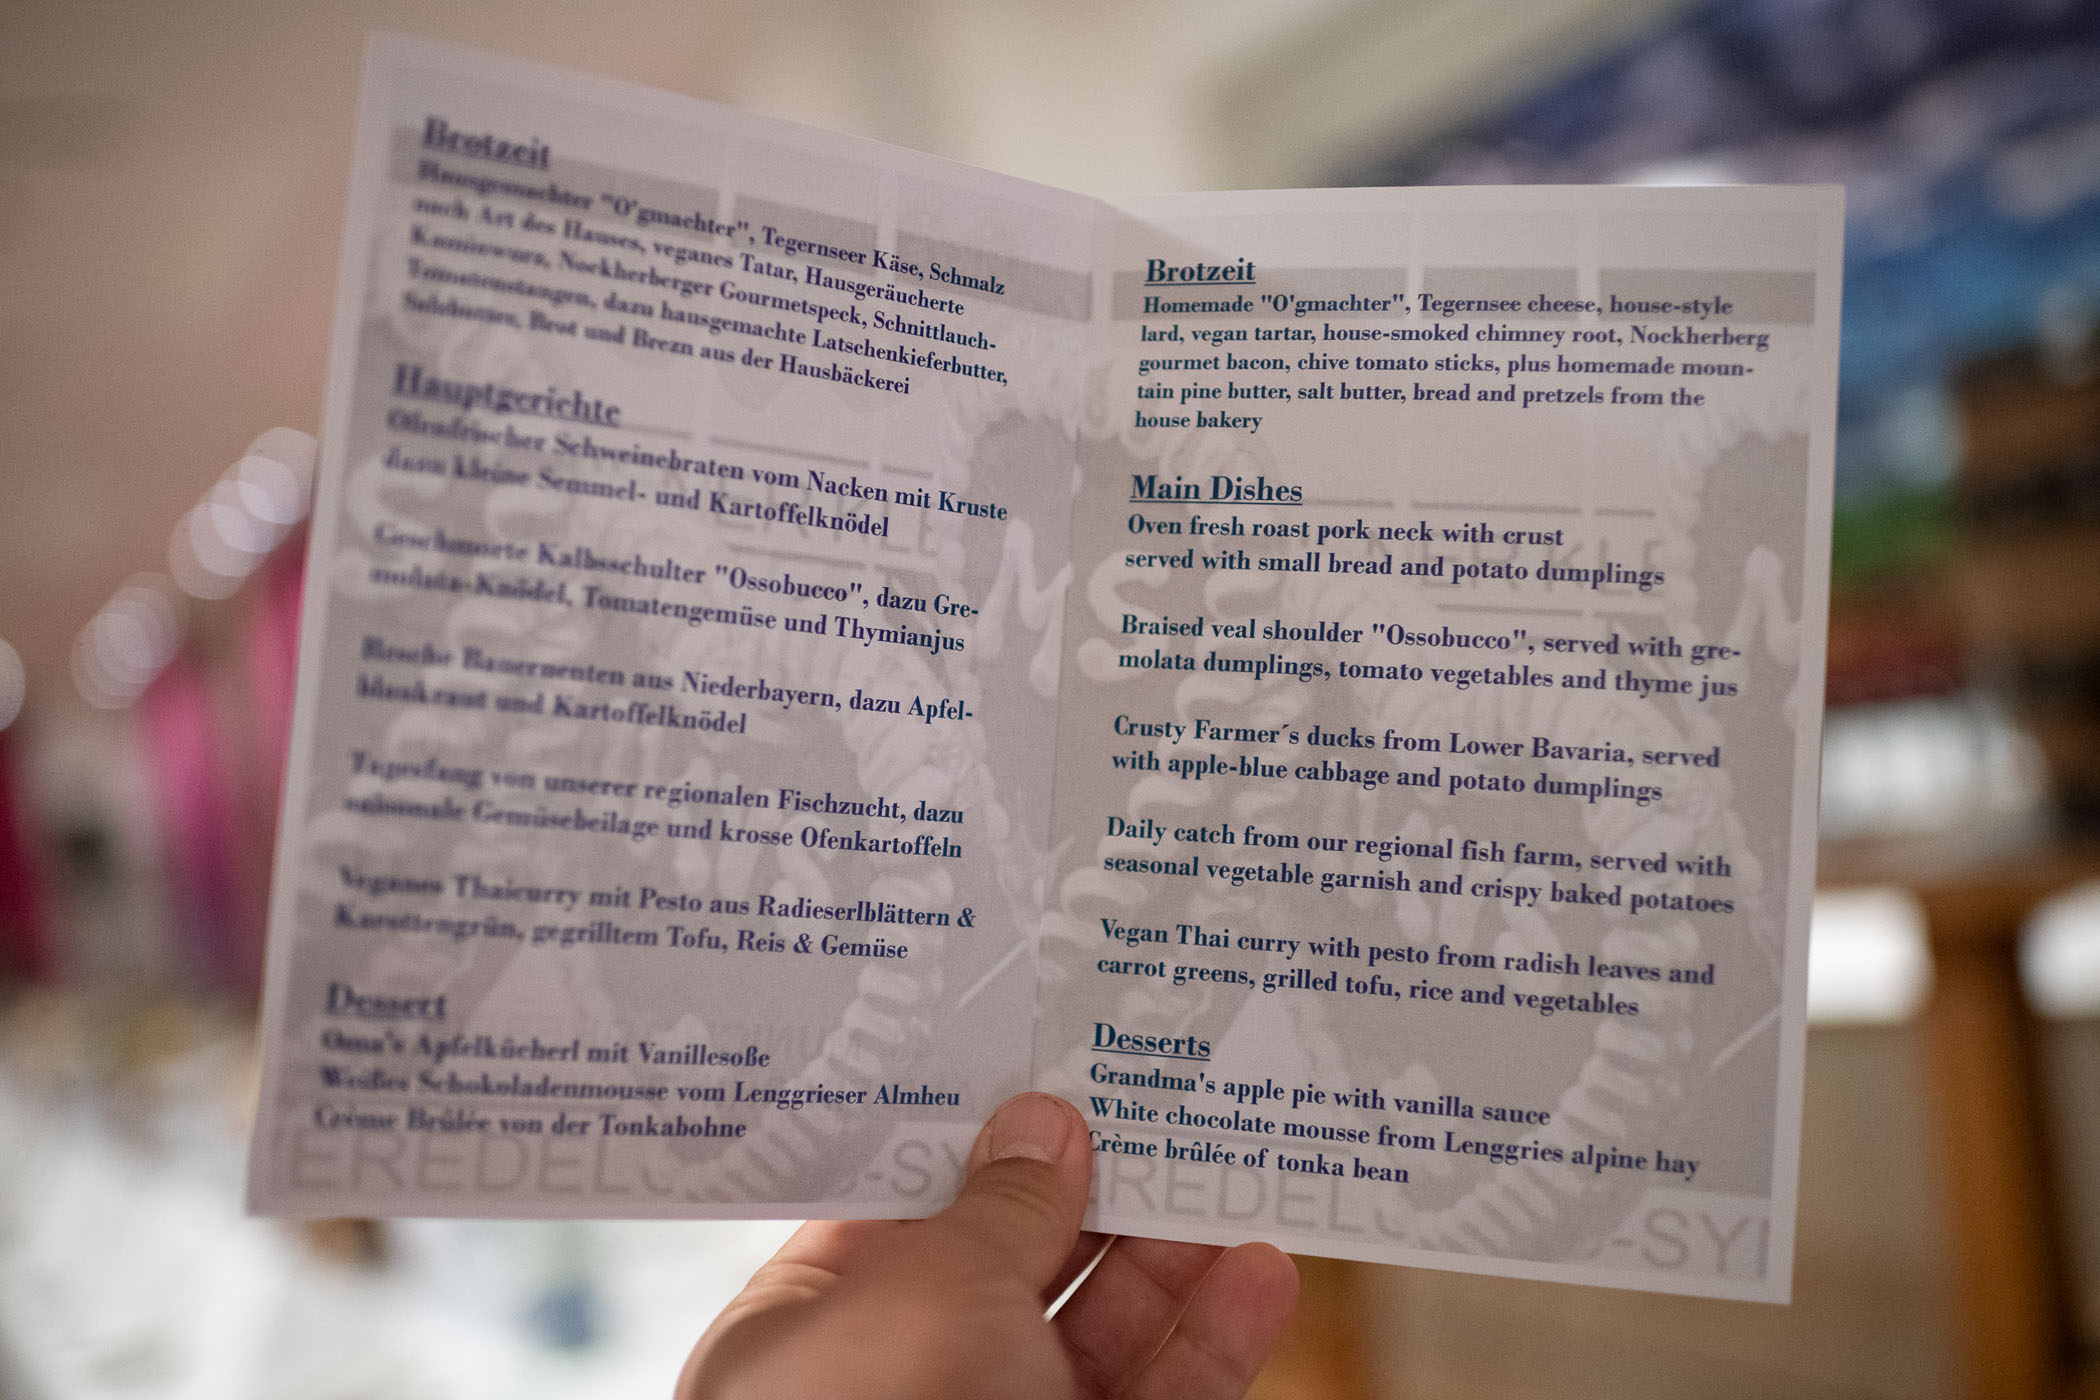 Brotzeit
Hausgemachter "O'gmachter", Tegernseer Käse, Schmalz
nach Art des Hauses, veganes Tatar, Hausgeräucherte
Kaminwurz, Nockherberger Gourmetspeck, Schnittlauch-
Tomatenstangen, dazu hausgemachte Latschenkieferbutter,
Salzbutter, Brot und Brezn aus der Hausbäckerei
Hauptgerichte
Ofenfrischer Schweinebraten vom Nacken mit Kruste
dazu kleine Semmel- und Kartoffelknödel
Geschmorte Kalbsschulter "Ossobucco", dazu Gre-
molata-Knödel, Tomatengemüse und Thymianjus
Resche Bauernenten aus Niederbayern, dazu Apfel-
blaukraut und Kartoffelknödel
Tagesfang von unserer regionalen Fischzucht, dazu
saisonale Gemüsebeilage und krosse Ofenkartoffeln
Veganes Thaicurry mit Pesto aus Radieserlblättern &
Karottengrün, gegrilltem Tofu, Reis & Gemüse
Dessert
Oma's Apfelkücherl mit Vanillesoße
Weißes Schokoladenmousse vom Lenggrieser Almheu
Crème Brûlée von der Tonkabohne
EREDEL
-SY
Brotzeit
Homemade "O'gmachter", Tegernsee cheese, house-style
lard, vegan tartar, house-smoked chimney root, Nockherberg
gourmet bacon, chive tomato sticks, plus homemade moun-
tain pine butter, salt butter, bread and pretzels from the
house bakery
Main Dishes
Oven fresh roast pork neck with crust
served with small bread and potato dumplings
Braised veal shoulder "Ossobucco", served with gre-
molata dumplings, tomato vegetables and thyme jus
Crusty Farmer´s ducks from Lower Bavaria, served
with apple-blue cabbage and potato dumplings
Daily catch from our regional fish farm, served with
seasonal vegetable garnish and crispy baked potatoes
Vegan Thai curry with pesto from radish leaves and
carrot greens, grilled tofu, rice and vegetables
Desserts
Grandma's apple pie with vanilla sauce
White chocolate mousse from Lenggries alpine hay
Crème brûlée of tonka bean
EREDEL
-SYI